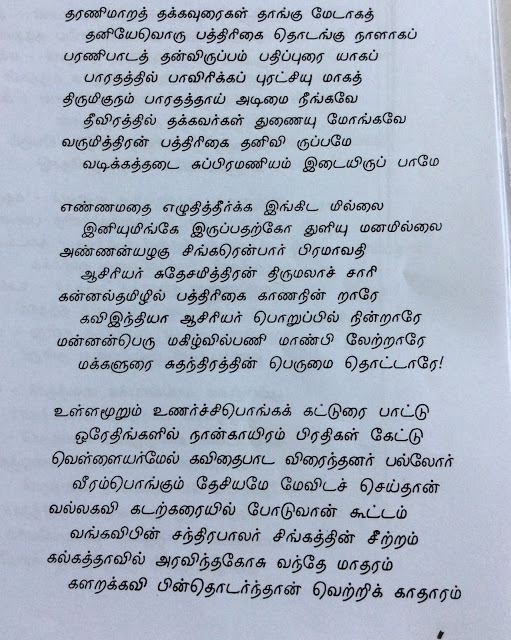 தரணிமாறத் தக்கவுரைகள் தாங்கு மேடாகத்
தனியேவொரு பத்திரிகை தொடங்கு நாளாகப்
பரணிபாடத் தன்விருப்பம் பதிப்புரை யாகப்
பாரதத்தில் பாவிரிக்கப் புரட்சியு மாகத்
திருமிகுநம் பாரதத்தாய் அடிமை நீங்கவே
தீவிரத்தில் தக்கவர்கள் துணையு மோங்கவே
வருமித்திரன் பத்திரிகை தனிவி ருப்பமே
வடிக்கத்தடை சுப்பிரமணியம் இடையிருப் பாமே
எண்ணமதை எழுதித்தீர்க்க இங்கிட மில்லை
இனியுமிங்கே இருப்பதற்கோ துளியு மனமில்லை
அண்ணன்யழகு சிங்கரென்பார் பிரமாவதி
ஆசிரியர் சுதேசமித்திரன் திருமலாச் சாரி
கன்னல்தமிழில் பத்திரிகை காணநின் றாரே
கவிஇந்தியா ஆசிரியர் பொறுப்பில் நின்றாரே
மன்னன்பெரு மகிழ்வில்பணி மாண்பி லேற்றாரே
மக்களுரை சுதந்திரத்தின் பெருமை தொட்டாரே!
உள்ளமூறும் உணர்ச்சிபொங்கக் கட்டுரை பாட்டு
ஒரேதிங்களில் நான்காயிரம் பிரதிகள் கேட்டு
வெள்ளையர்மேல் கவிதைபாட விரைந்தனர் பல்லோர்
வீரம்பொங்கும் தேசியமே மேவிடச் செய்தான்
வல்லகவி கடற்கரையில் போடுவான் கூட்டம்
வங்கவிபின் சந்திரபாலர் சிங்கத்தின் சீற்றம்
கல்கத்தாவில் அரவிந்தகோசு வந்தே மாதரம்
களறக்கவி பின்தொடர்ந்தான் வெற்றிக் காதாரம்